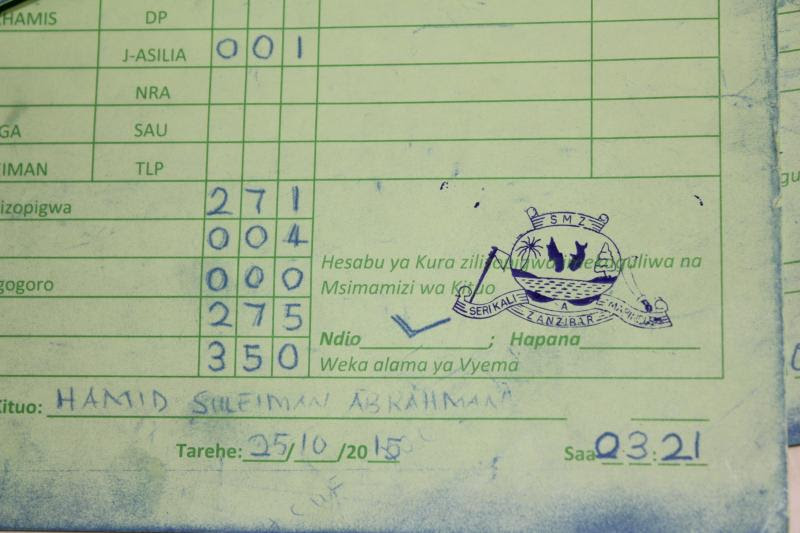 KHAMIS DP
J-ASILIA 0 0 1
NRA
GA SAU
IMAN TLP
izopigwa 2 7 1
0 0 4
gogoro 0 0 0
2 7 5
3 5 0
SMZ
SERIKALI YA MAPINDUZI
ZANZIBAR
Hesabu ya Kura na
Msimamizi wa Kituo
Ndio ; Hapana
Weka alama ya Vyema
Kituo: HAMID SULEIMAN ABRAHMAN
Tarehe: 25/10/2015 Saa 03:21